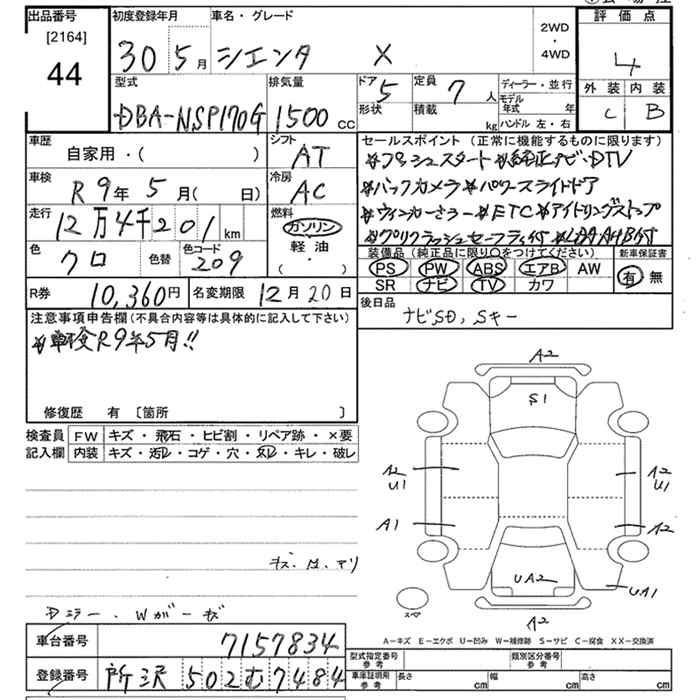 出品番号
[2164]
44
初度登録年月
30 5月
車名・グレード
シエンタ X
2WD
・
4WD
評価点
4
外装 内装
C B
型式
DBA-NSP170G
排気量
1500 cc
ドア 5
形状
定員 7 人
積載 kg
ディーラー・並行
モデル年式 年
ハンドル 左・右
車歴
自家用・( )
シフト
AT
車検
R9年5月( 日)
冷房
AC
走行
12万4千201 km
燃料
ガソリン
軽油
( ・ )
色
クロ
色替
色コード
209
セールスポイント (正常に機能するものに限ります)
*プッシュスタート*純正ナビ・DTV
*バックカメラ*パワースライドドア
*ウィンカーミラー*ETC*アイドリングストップ
装備品 (純正品に限り○をつけてください)
新車保証書
PS PW ABS エアB AW
SR ナビ TV カワ
有 無
R券 10,360円
名変期限 12月20日
後日品
ナビSD, Sキー
注意事項申告欄(不具合内容等は具体的に記入して下さい)
*車検R9年5月!!
修復歴 有 〔箇所 〕
検査員
記入欄
FW キズ・飛石・ヒビ割・リペア跡・×要
内装 キズ・汚レ・コゲ・穴・スレ・キレ・破レ
A2
S1
A2
U1
A2
U1
A1
A2
UA2
UA1
スペア
A2
Dミラー・Wガーゼ
車台番号 7157834
登録番号 所沢 502 む 7484
A-キズ E-エクボ U-凹み W-補修跡 S-サビ C-腐食 XX-交換済
型式指定番号 参考
類別区分番号 参考
車庫証明用 参考
長さ cm 幅 cm 高さ cm